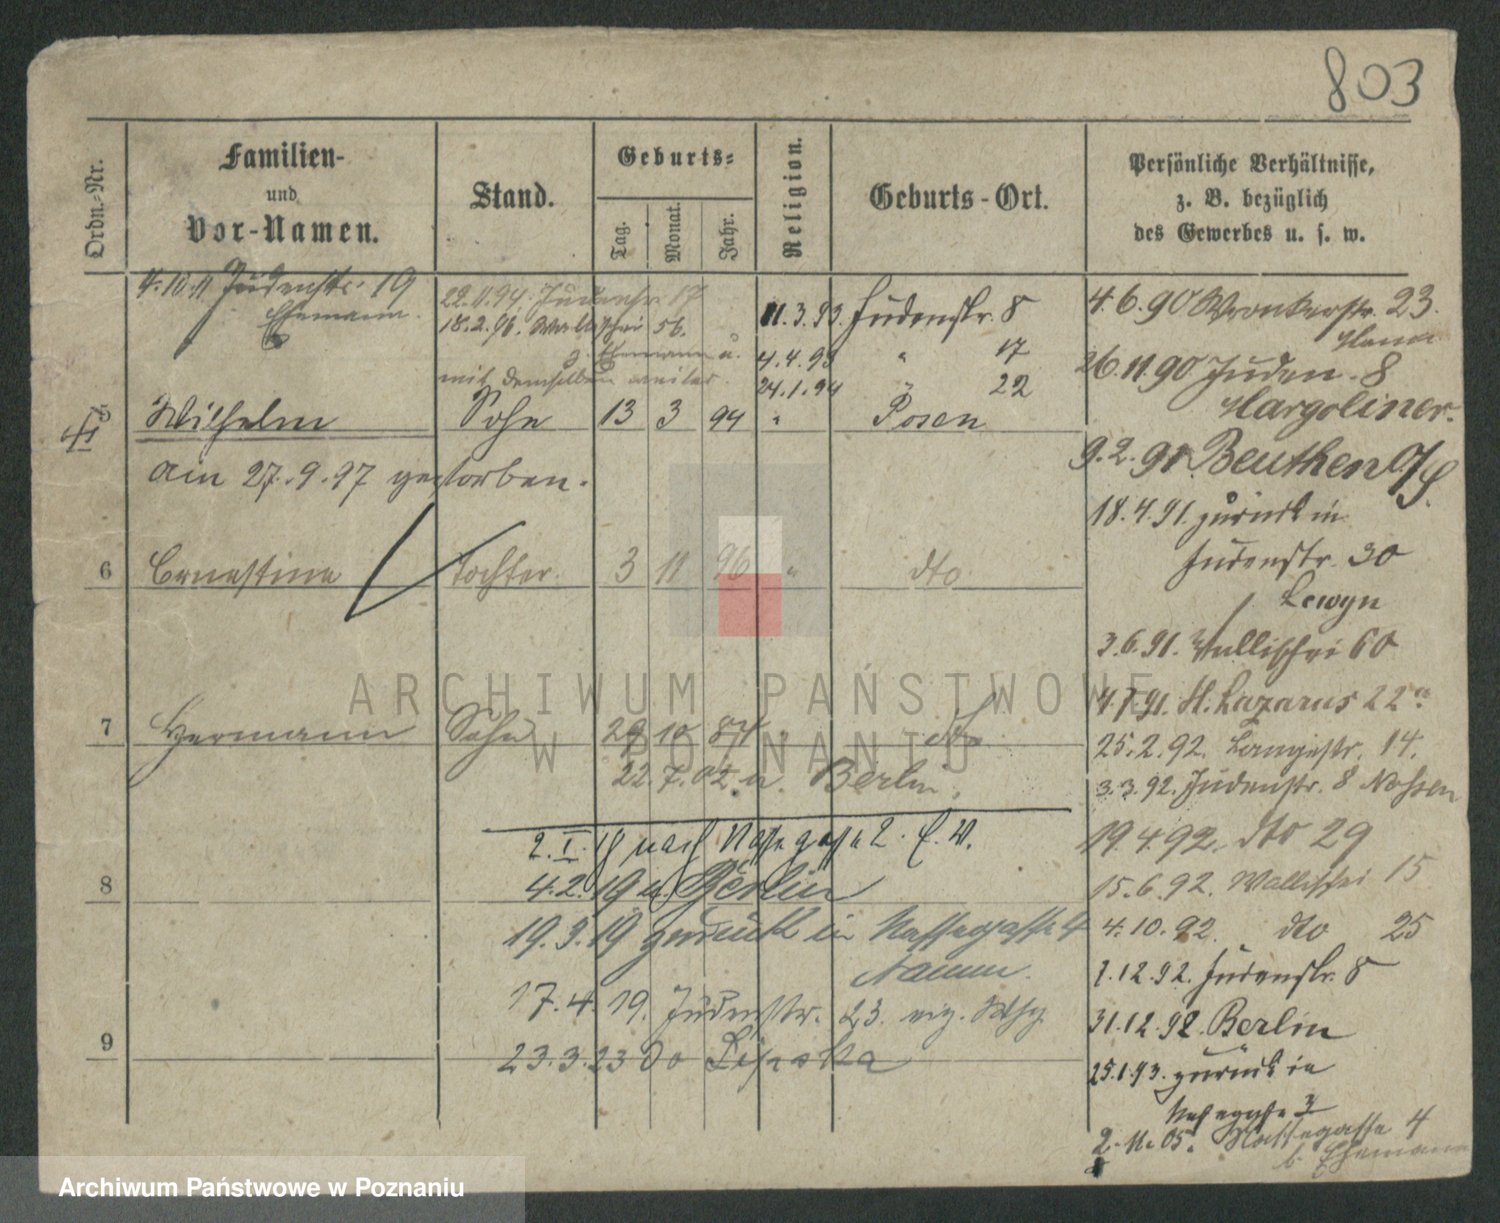 803
Ordn.-Nr.
Familien-
und
Vor-Namen.
Stand.
Geburts-
Tag.
Monat.
Jahr.
Religion.
Geburts-Ort.
Persönliche Verhältnisse,
z. B. bezüglich
des Gewerbes u. s. w.
4.10.11 Judenstr. 19
Ehemann.
22.11.94. Judenstr. 17
18.2.96. Wallischei 56.
z. Ehemann u.
mit demselben weiter.
11.3.93. Judenstr. 8
4.4.93 " 17
24.1.94 " 22
Wilhelm Sohn 13 3 94 " Posen
am 27.9.97 gestorben.
6 Ernestine Tochter. 3 11 96 " dto
7 Hermann Sohn 29 10 87 dto
22.7.02. n. Berlin.
2.I.19 nach Nassegasse 2. E. W.
8 4.2.19 n Berlin
19.3.19 zurück in Nassegasse 4
17.4.19. Judenstr. 23. eig. Whg
9 23.3.23 do
4.6.90 Wronkerstr. 23.
26.11.90 Juden. 8
Margoliner.
9.2.91. Beuthen O/S.
18.4.91. zurück in
Judenstr. 30
Lewyn
3.6.91. Wallischei 60
4.7.91. St. Lazarus 22a
25.2.92. Langestr. 14.
3.3.92. Judenstr. 8
19.4.92. dto 29
15.6.92. Wallischei 15
4.10.92. dto 25
1.12.92. Judenstr. 8
31.12.92. Berlin
25.1.93. zurück in
Nassegasse 3
2.11.05. Nassegasse 4
b. Ehemann
ARCHIWUM PAŃSTWOWE
W POZNANIU
Archiwum Państwowe w Poznaniu